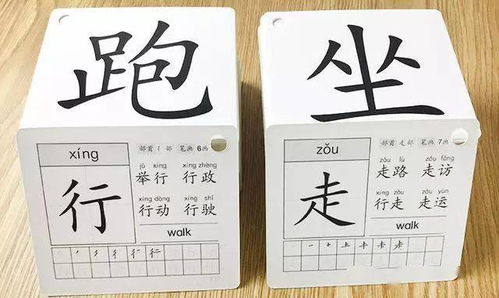 跑
xíng
部首 彳部 笔画 6画
行
jǔ xíng xíng zhèng
举行 行政
xíng dòng xíng shǐ
行动 行驶
walk
坐
zǒu
部首 走部 笔画 7画
走
zǒu lù zǒu fǎng
走路 走访
xíng zǒu zǒu yùn
行走 走运
walk